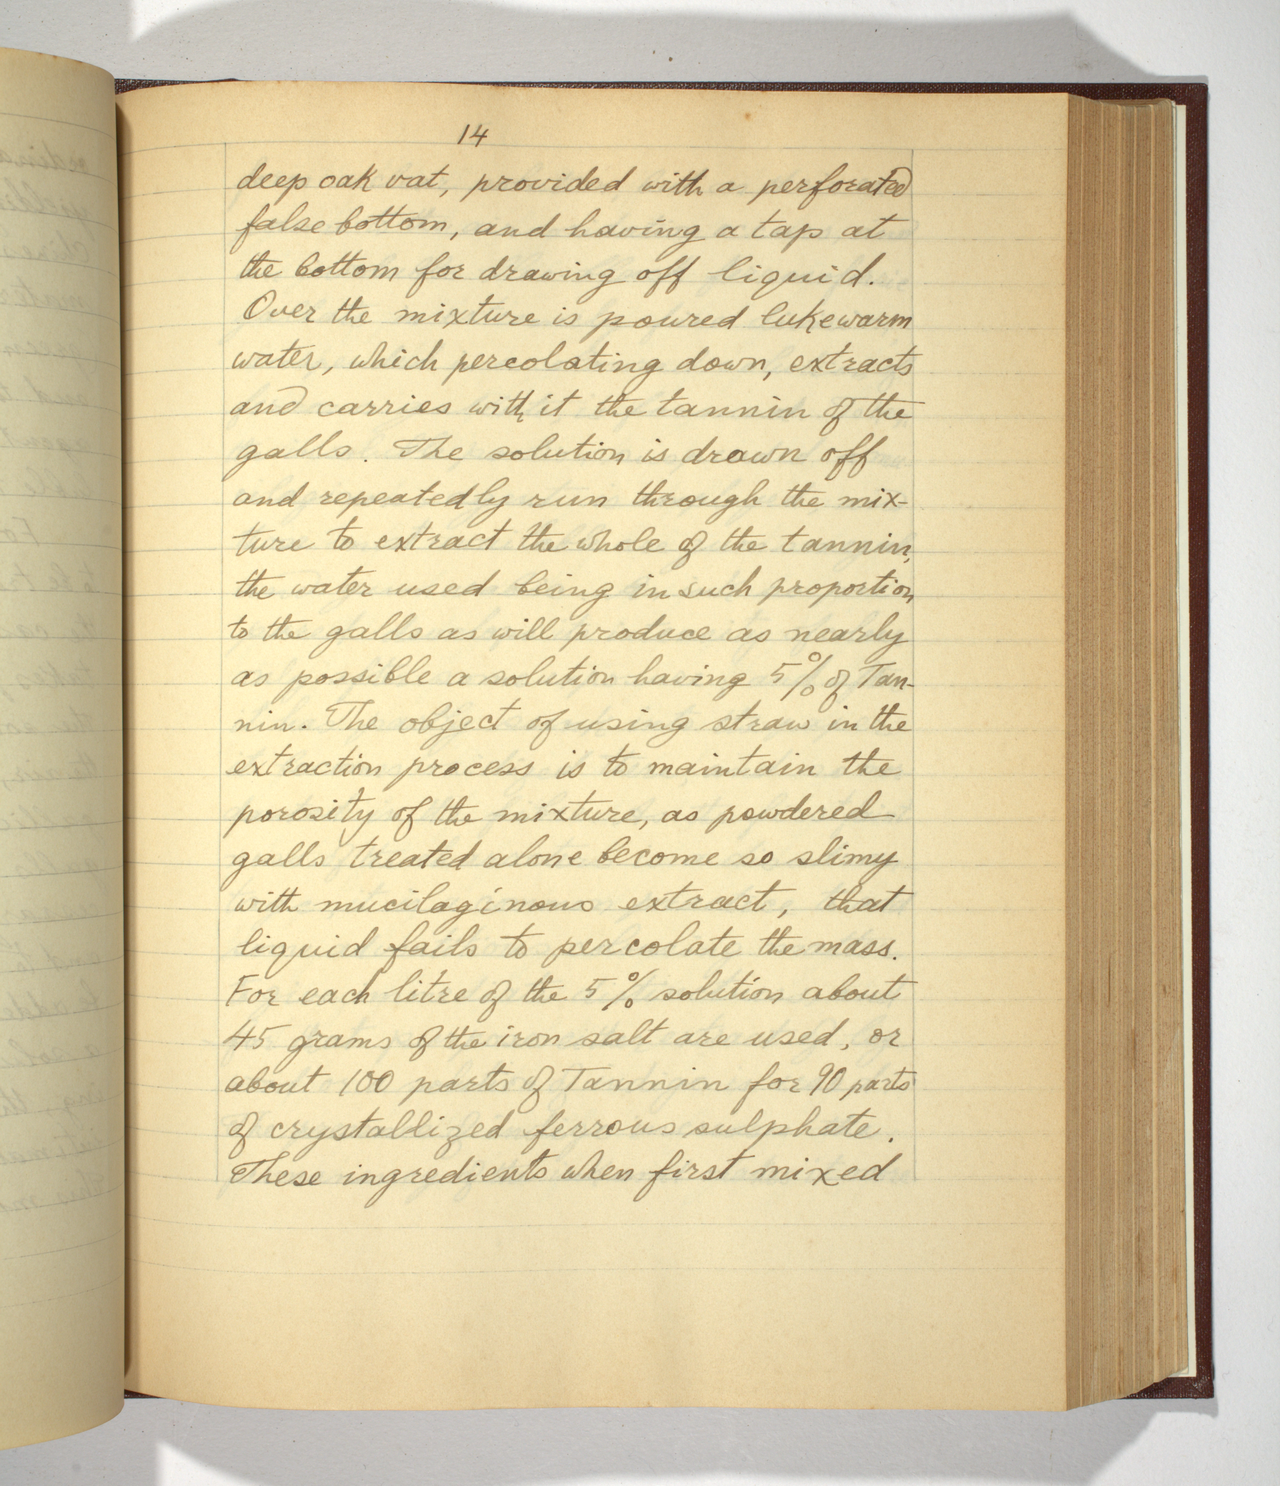 14
deep oak vat, provided with a perforated
false bottom, and having a tap at
the bottom for drawing off liquid.
Over the mixture is poured lukewarm
water, which percolating down, extracts
and carries with it the tannin of the
galls. The solution is drawn off
and repeatedly run through the mix-
ture to extract the whole of the tannin,
the water used being in such proportion
to the galls as will produce as nearly
as possible a solution having 5% of Tan-
nin. The object of using straw in the
extraction process is to maintain the
porosity of the mixture, as powdered
galls treated alone become so slimy
with mucilaginous extract, that
liquid fails to percolate the mass.
For each litre of the 5% solution about
45 grams of the iron salt are used, or
about 100 parts of Tannin for 90 parts
of crystallized ferrous sulphate.
These ingredients when first mixed